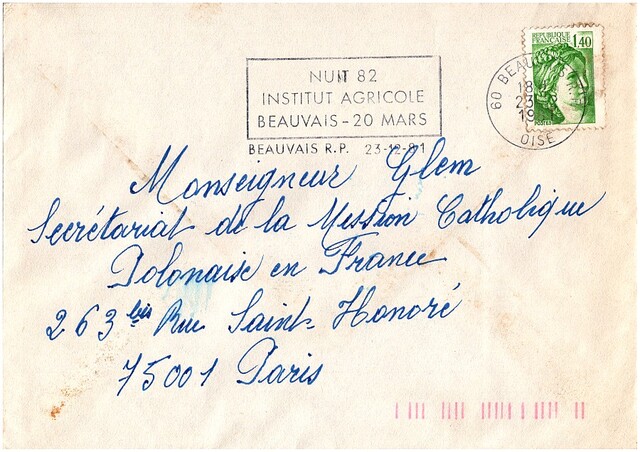 RÉPUBLIQUE
FRANÇAISE
1,40
NUIT 82
INSTITUT AGRICOLE
BEAUVAIS - 20 MARS
BEAUVAIS R.P. 23-12-81
60 BEAU
18
23
19
OISE
Monseigneur Glem
Secrétariat de la Mission Catholique
Polonaise en France
263 bis Rue Saint-Honoré
75001 Paris